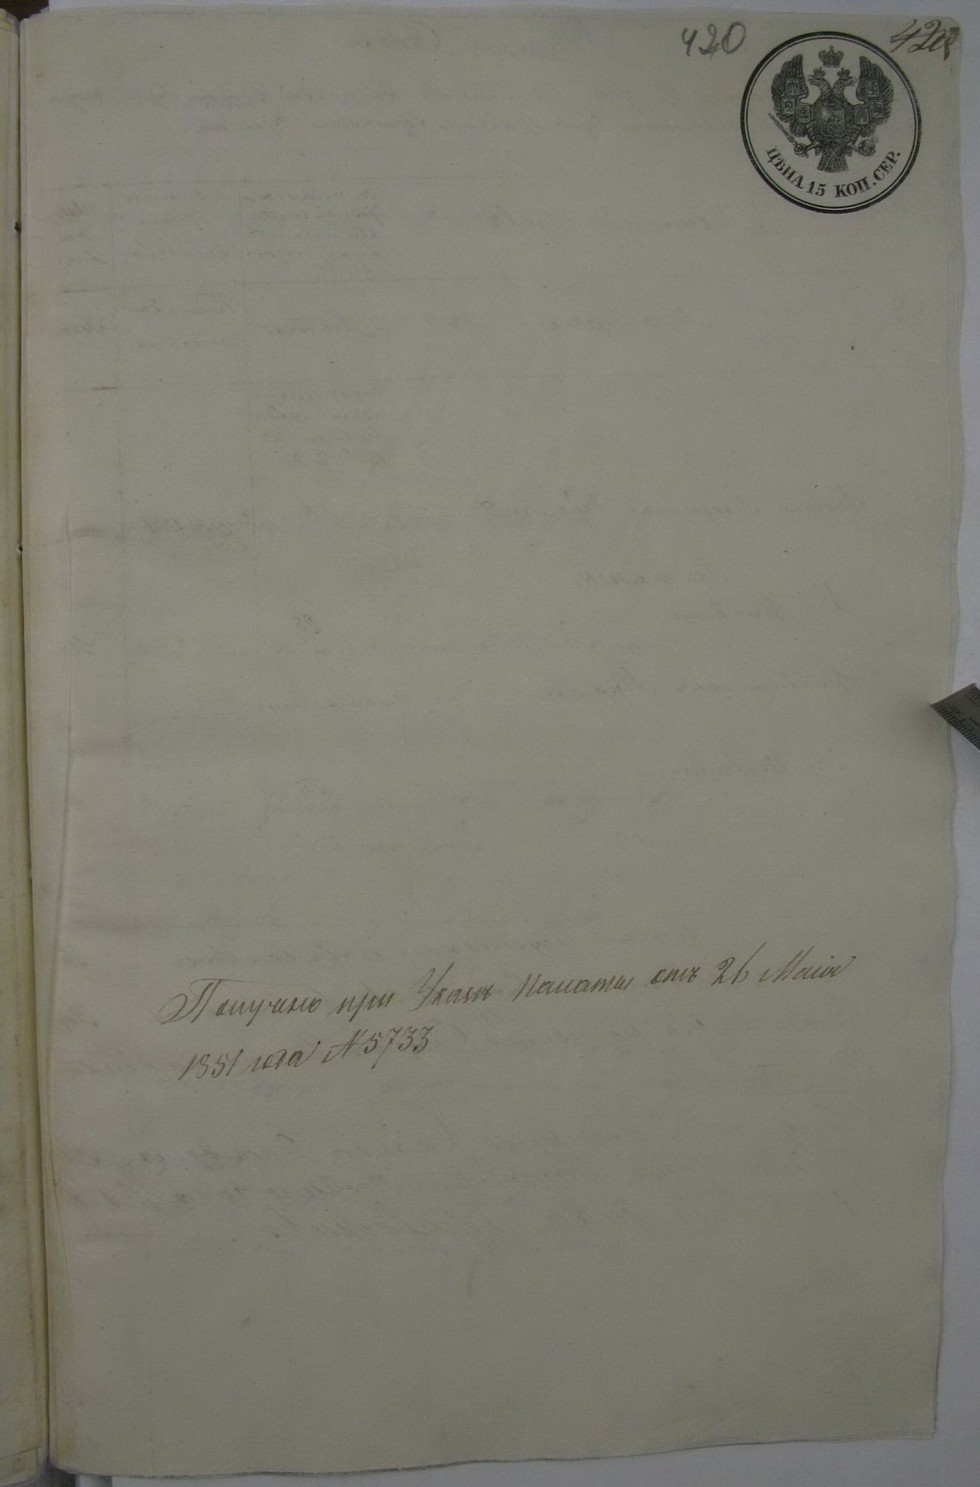 420
ЦѢНА 15 КОП. СЕР.
Получено при Указѣ Палаты отъ 26 Маія
1851 года № 5733